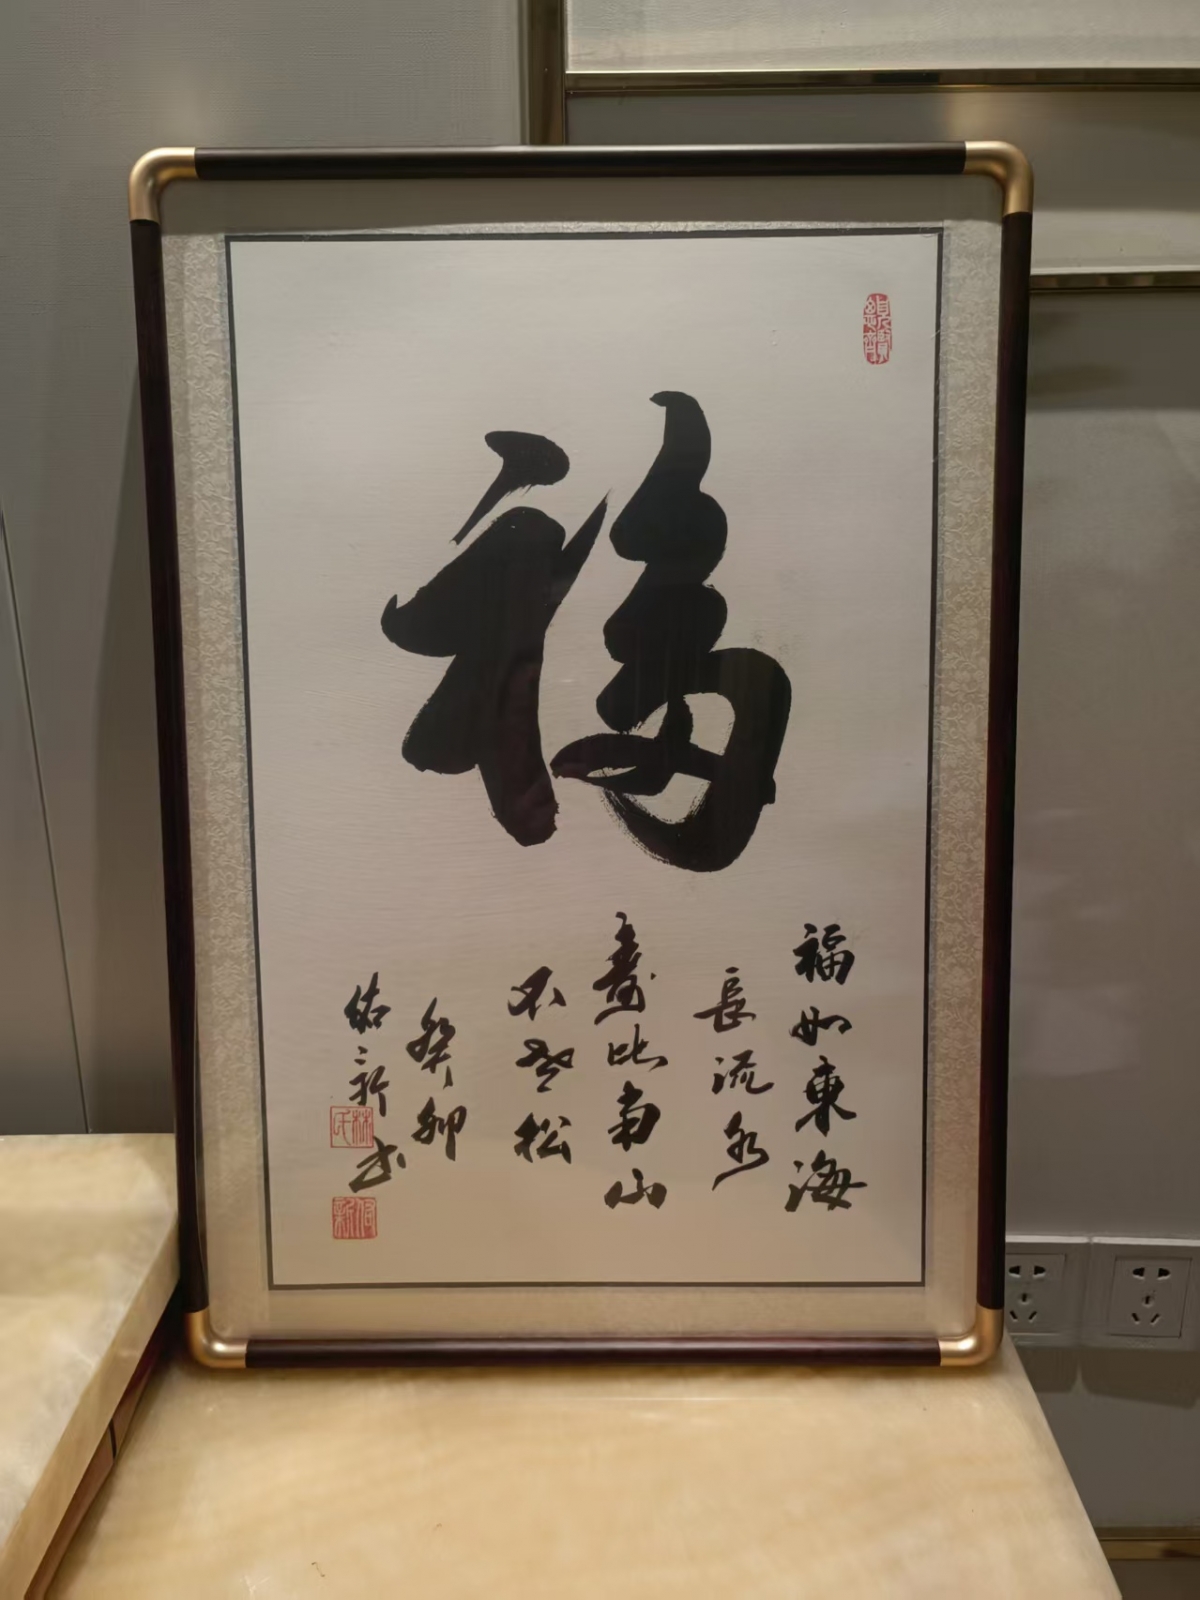 福
福如東海
長流水
壽比南山
不老松
癸卯
佑新書
林氏
佑新